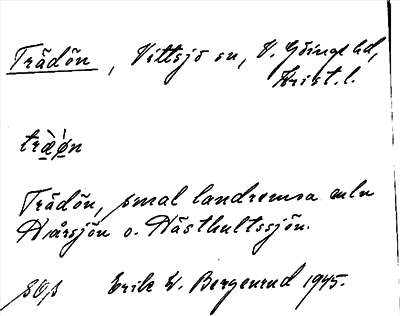 Trädön, Vittsjö sn, V. Göinge hd,
Krist. l.
træ̀ø̀n
Trädön, smal landremsa mln
Hårsjön o. Hästhultssjön.
Erik W. Bergenrud 1945.